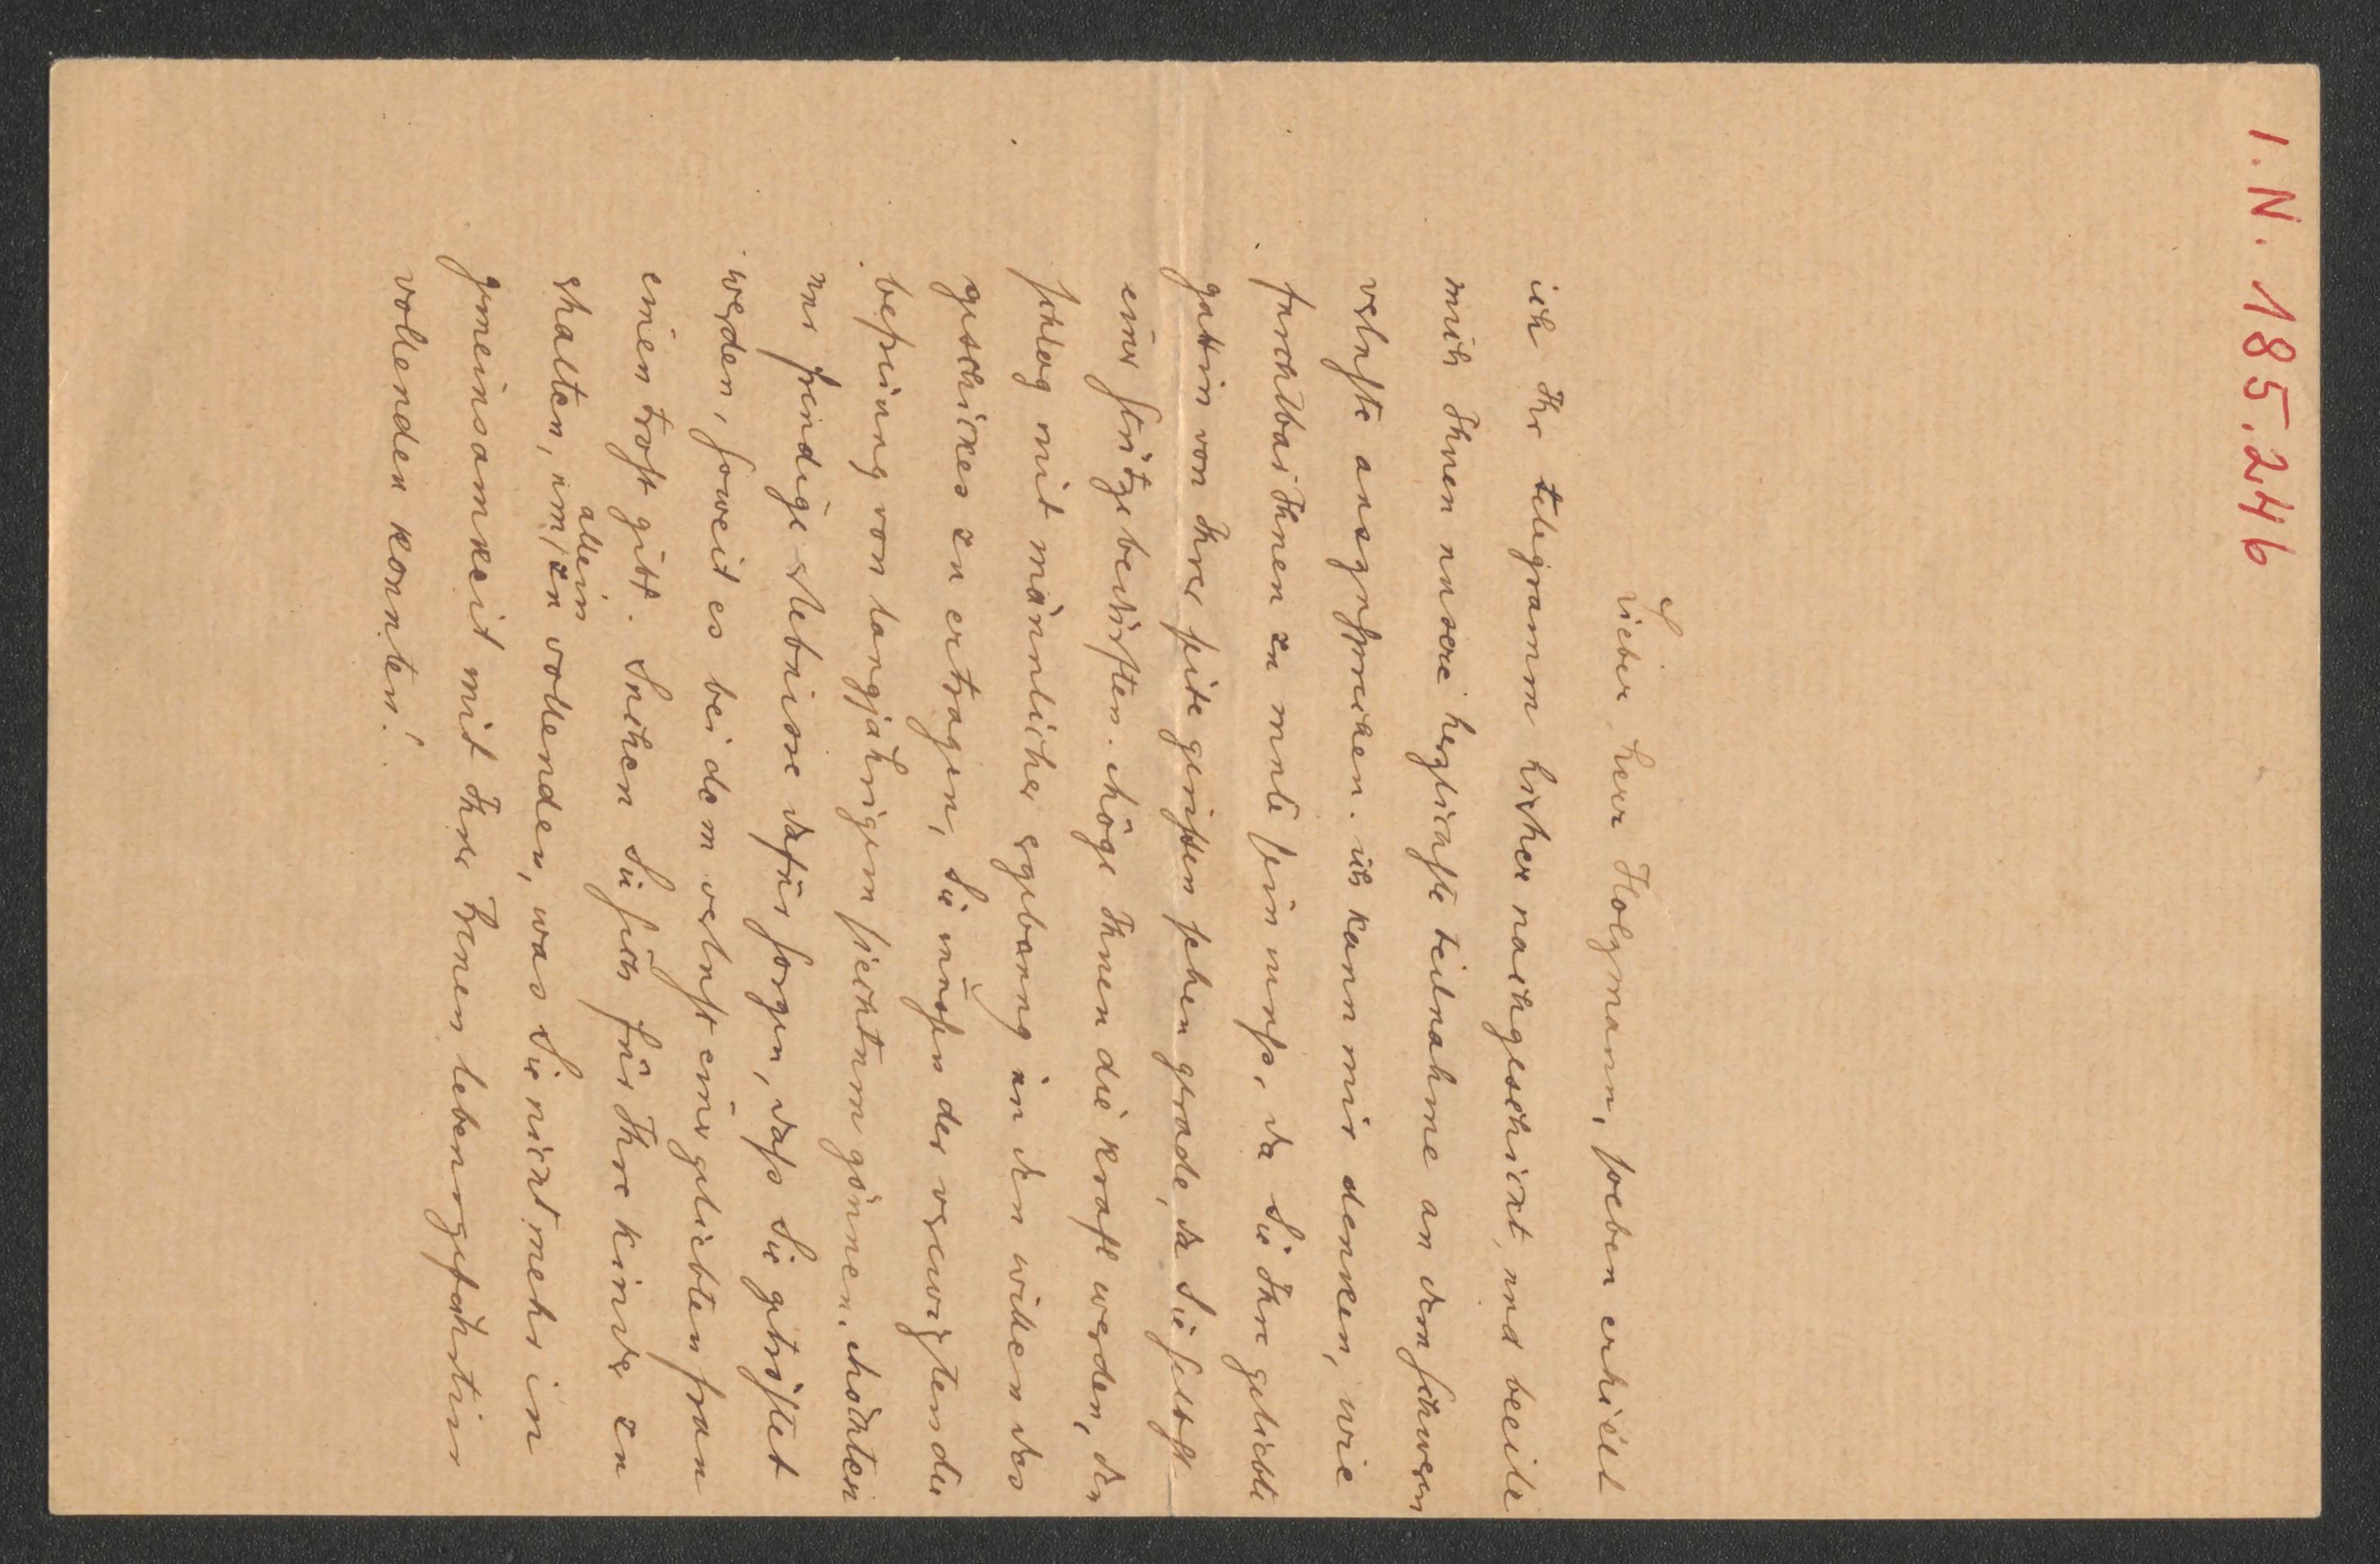 I. N. 185.246
Lieber herr Holzmann, soeben erhielt
ich Ihr telegramm hierher nachgeschickt, und beeile
mich Ihnen unsere herzlichste teilnahme an dem schweren
verluste auszusprechen. ich kann mir denken, wie
furchtbar Ihnen zu mute sein muss, da Sie Ihre geliebte
gattin von Ihrer seite gerissen sehen grade, da Sie selbst
einer stütze bedürften. Möge Ihnen die kraft werden, den
schlag mit männlicher ergebung in den willen des
geschickes zu ertragen, Sie müssen der verewigten die
befreiung von langjährigem siechtum gönnen. Möchten
nur freudige erlebnisse dafür sorgen, dass Sie getröstet
werden, soweit es bei dem verlust einer geliebten frau
einen trost gibt. Suchen Sie sich für Ihre kinder zu
erhalten, um allein zu vollenden, was Sie nicht mehr in
gemeinsamkeit mit Ihrer treuen lebensgefährtin
vollenden konnten!